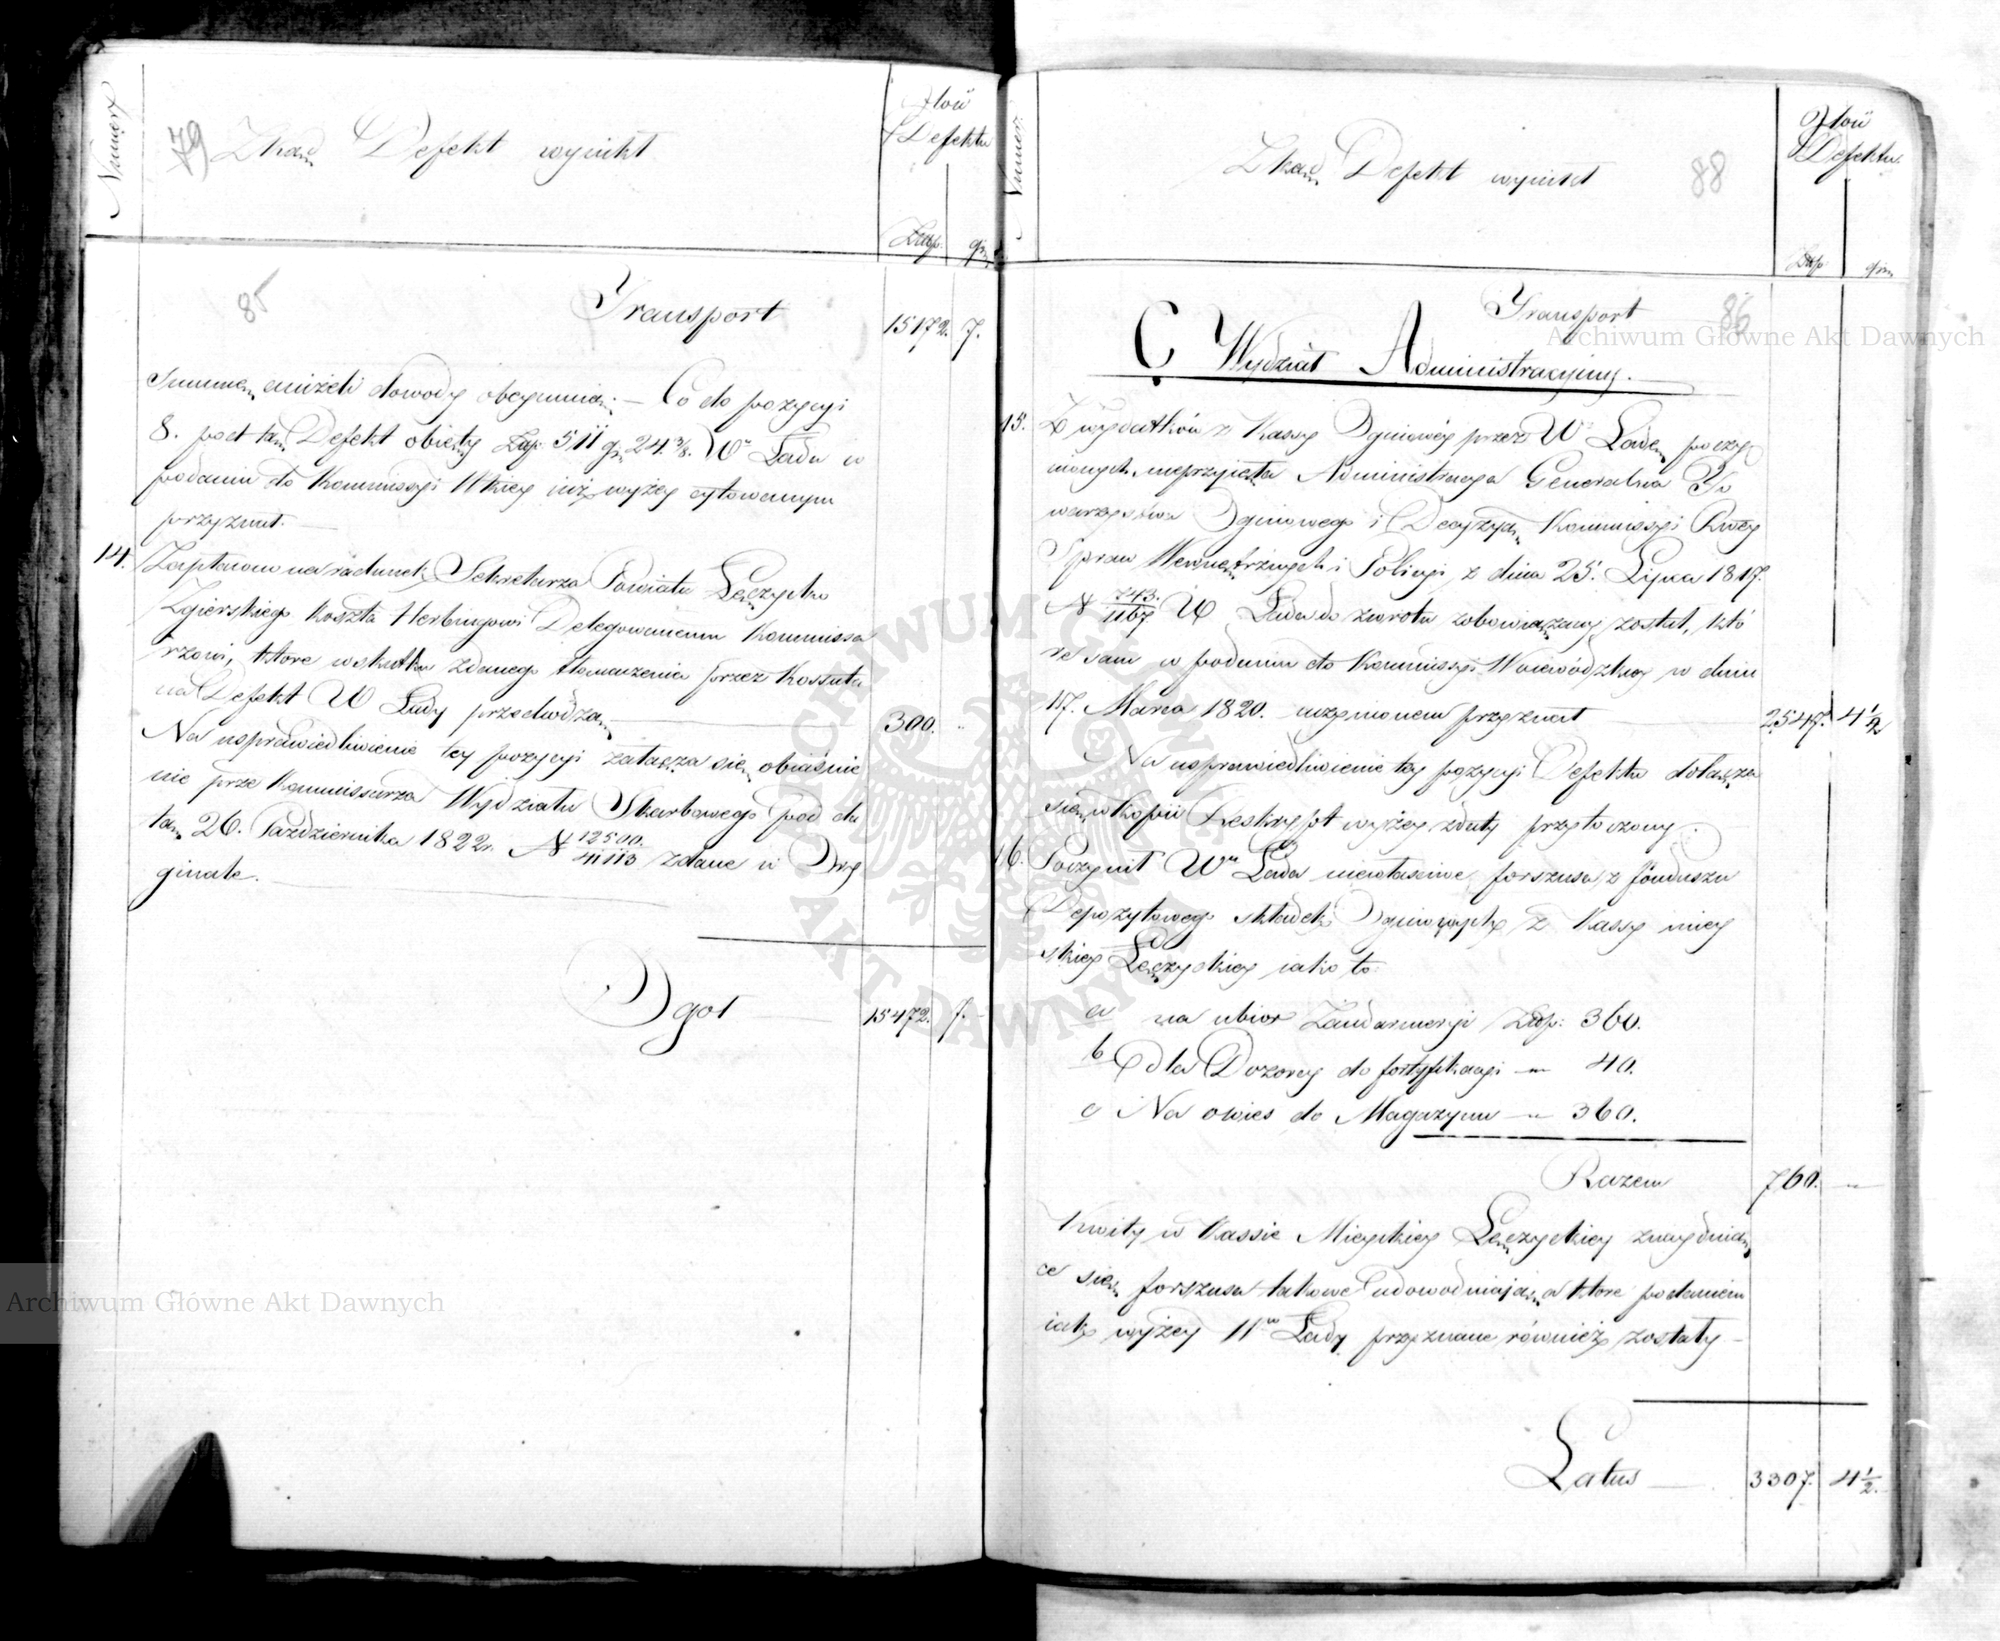 Numer
79 Zkąd Defekt wynikł
Ilość
Defektu
Złotp. gr.
85
Transport 15172. 7.
Summę aniżeli dowody obeymuią. — Co do pozycyi
8. pod tem Defekt obięty Złp. 511 gr. 24 3/8. W. Lada w
podaniu do Kommissyi Wtwey iuż wyżey cytowanym
przyznał. —
14. Zapłacono na rachunek Sekretarza Powiatu Łęczycko
Zgierskiego Koszta Herbingowi Delegowanemu Kommissa
rzowi, które wskutku zdanego tłomaczenia przez Kossuta
na Defekt W Lady przechodzą 300. "
Na usprawiedliwienie tey pozycyi załącza się obiaśnie
nie prze Kommissarza Wydziału Skarbowego pod da
tą 26. Października 1822 r. N 12500./41113 zdane w Ory
ginale. —
Ogoł — 15472. 7. -
Numer
Zkąd Defekt wynikł 88
Ilość
Defektu
Złp gr.
Transport 86
C Wydział Administracyiny. —
15. Z wydatków z Kassy Ogniowéy przez W. Ladę poczy
nionych nieprzyięła Administracya Generalna To
warzystwa Ogniowego i Decyzyą Kommissyi Rwey
Spraw Wewnętrznych i Policyi z dnia 25. Lipca 1817.
N 743./1167 W Lada do zwrotu zobowiązany został, któ
re sam w podaniu do Kommissyi Woiewódzkiey w dniu
17. Marca 1820. uczynionem przyznał 2547. 4 1/2
Na usprawiedliwienie tey pozycyi Defektu dołącza
się w Kopii Reskrypt wyżey z daty przytoczony.
16. Poczynił W. Lada niewłaściwe forszusa z funduszu
Depozytowego składek Ogniowych z Kassy miey
skiey Łęczyckiey iako to:
a na ubior Żandarmeryi Złp: 360.
b dla Dozorcy do fortyfikacyi — " 40.
c Na owies do Magazynu — " 360.
Razem 760. "
Kwity w Kassie Mieyskiey Łęczyckiey znayduią
ce się forszusa takowe udowodniaią, a które podaniem
iak wyżey W. Lady przyznane również zostały —
Latus — 3307. 4 1/2.
Archiwum Główne Akt Dawnych
Archiwum Główne Akt Dawnych
ARCHIWUM GŁÓWNE
AKT DAWNYCH